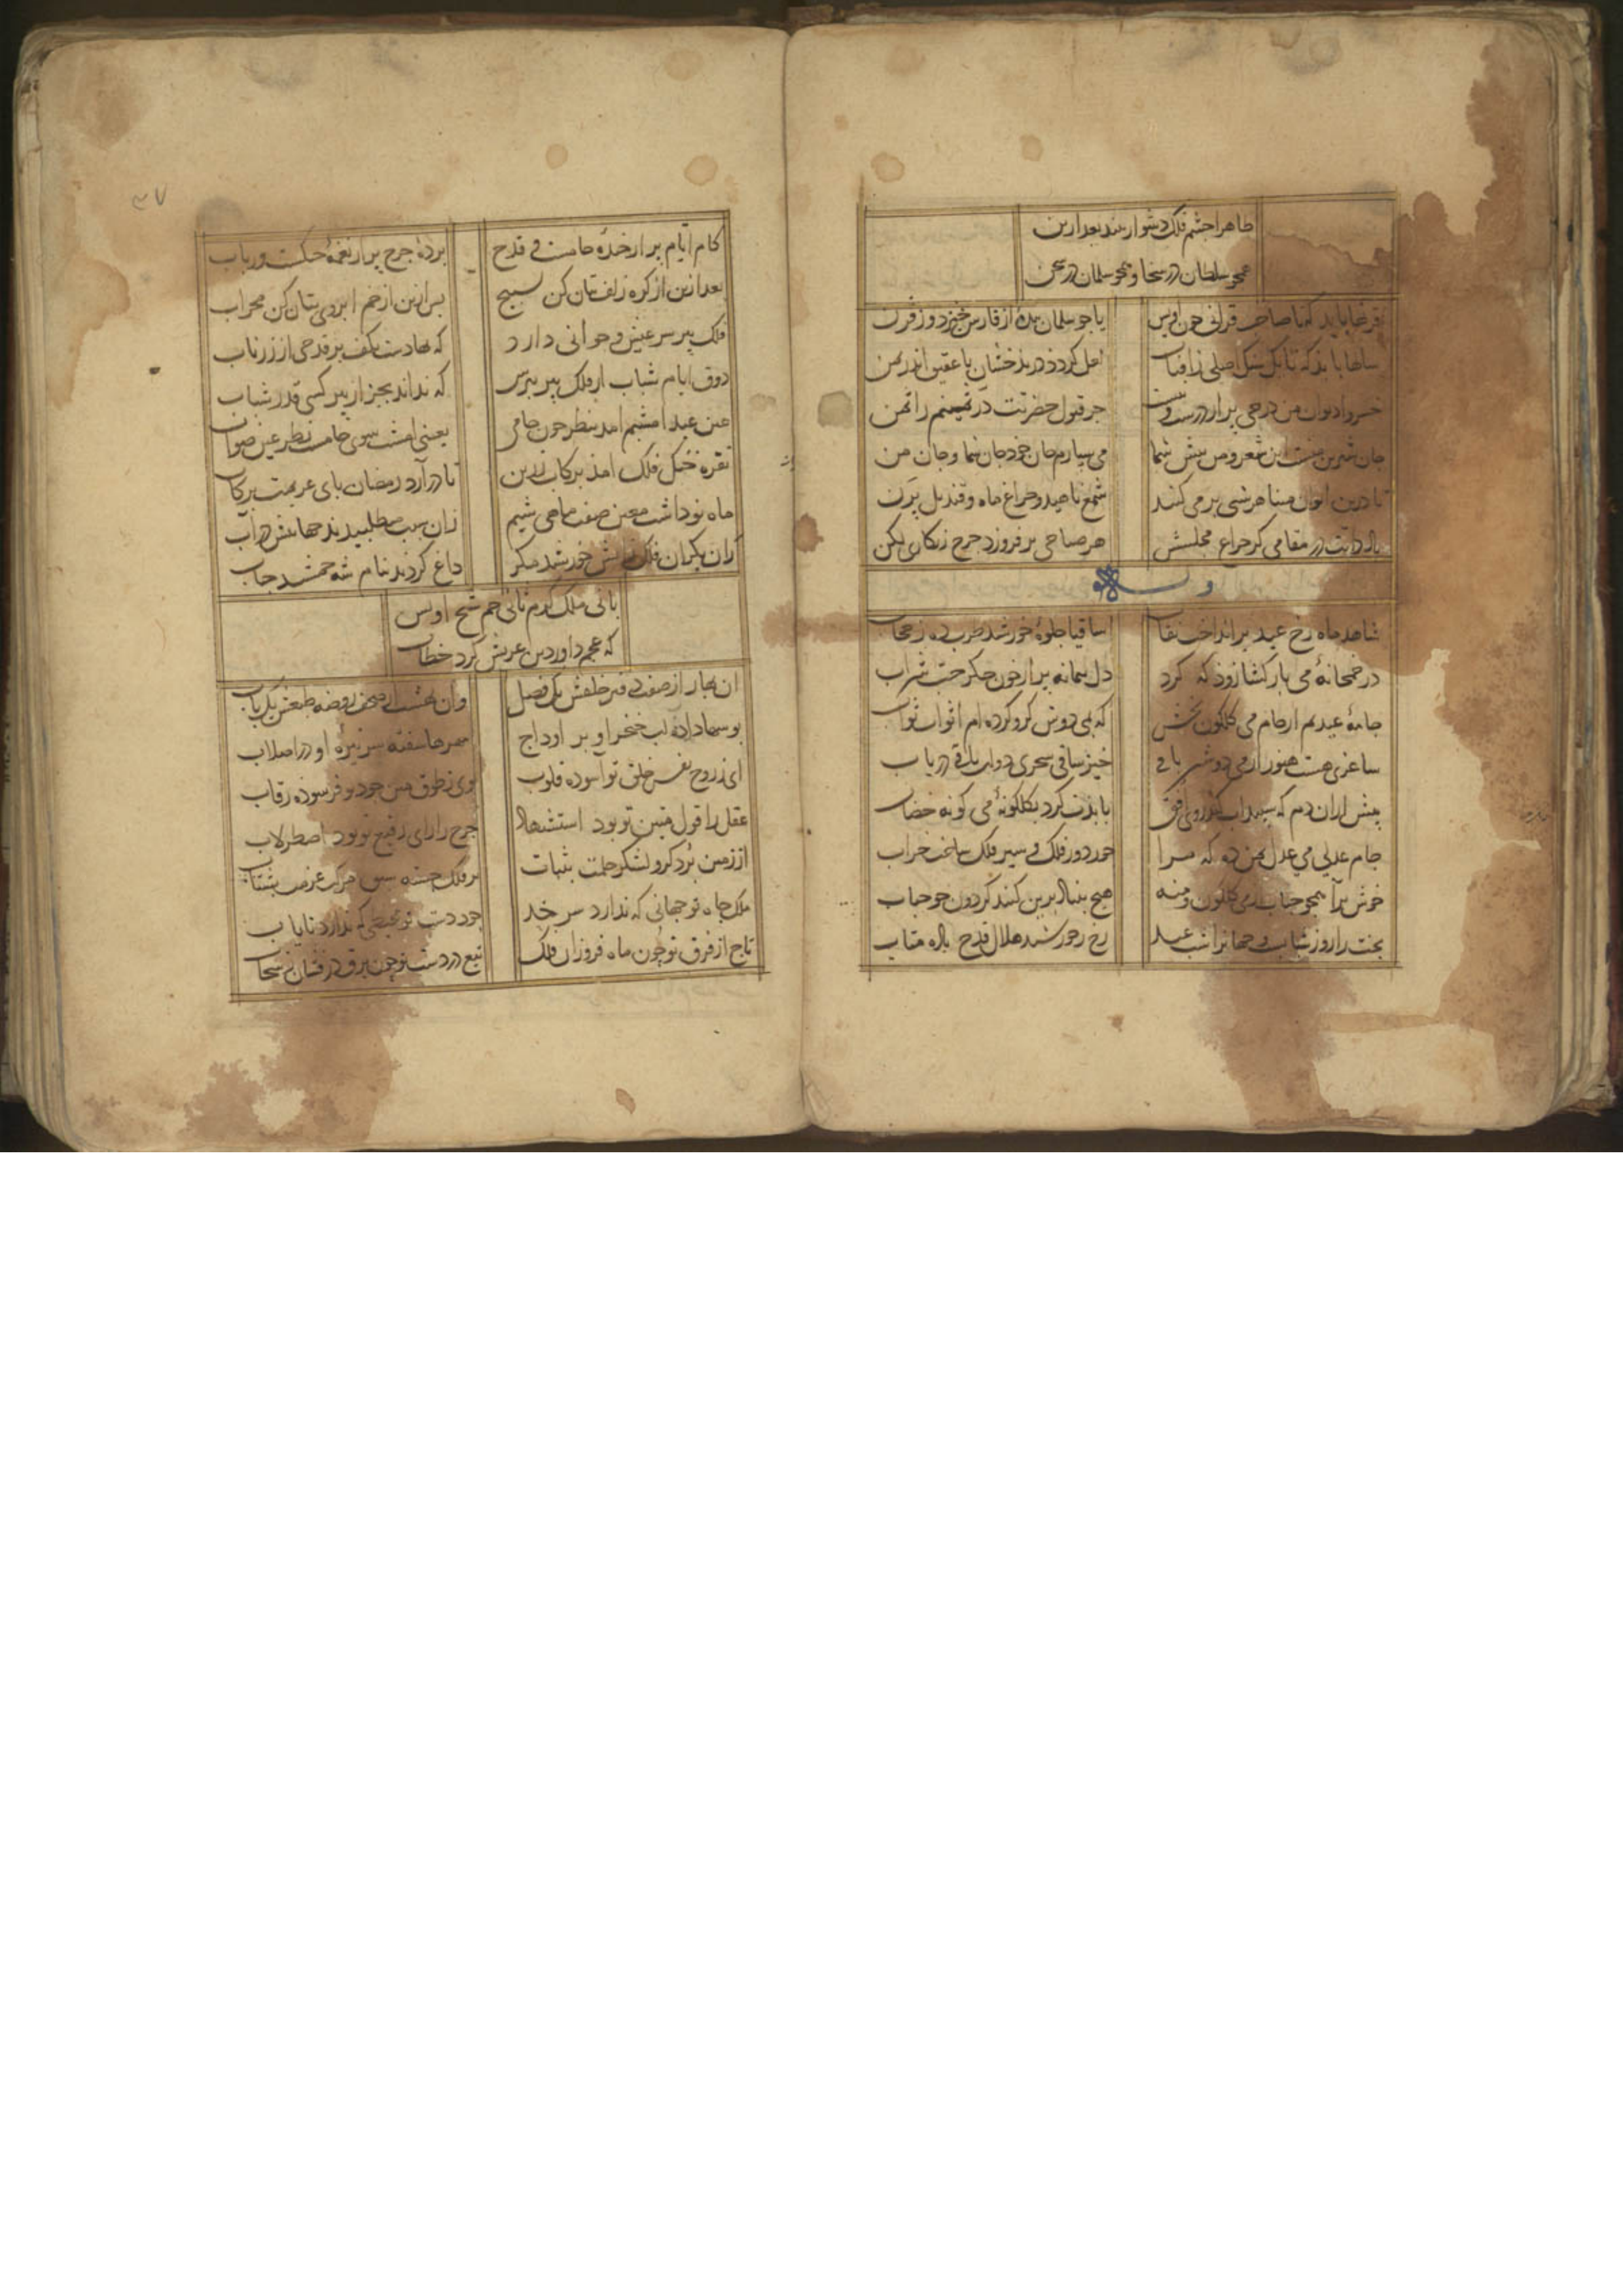 ظاهرا چشم فلک دشوار بیند بعد ازین
همچو سلطان در سخا و همچو سلمان در سخن
قرنها باید که تا صاحب قرانی چون اویس
یا چو سلمان بنده از فارس خیزد و ز قرن
سالها باید که تا یک سنک اصلی ز افتاب
لعل کردد در بدخشان یا عقیق اندر یمن
خسروا دیوان من درجی پر از در
جز قبول حضرتت در ثمینم را ثمن
جان شیرین منست این شعر و من پیش شما
می سپارم جان خود جان شما و جان من
تا درین ایوان مینا هر شبی بر می کنند
شمع ناهید و چراغ ماه و قندیل پرن
باد ذاتت در مقامی کز چراغ مجلسش
هر صباحی بر فروزد چرخ زنکاری لکن
وله
شاهد ماه رخ عید بر انداخت نقاب
ساقیا جلوه خورشید طرب ده ز حجاب
در خمخانه می باز کشا زود که کرد
دل پیمانه پر از خون جکر حب شراب
جامه عیدیم از جام می کلکون بخش
که بمی دوش کرو کرده ام اثواب ثواب
ساغری هست هنوز از می دوشین باقی
خیز ساقی سحری دولت باقی دریاب
پیش ازان دم که سپیداب کند روی افق
بایدت کرد بکلکونه می کونه خضاب
جام عدلی می عدل بمن ده که مرا
دور فلک و سیر فلک ساخت خراب
خوش برآ همچو حباب از می کلکون و منه
هیچ بنیاد برین کنبد کردون چو حباب
بخت را روز شبابست و جهانرا شب عید
رخ ز خورشید هلال قدح باده متاب
۳۷
کام ایام پر از خنده جامست و قدح
پرده چرخ پر از نغمه چنکست و رباب
بعد ازین از کره زلف بتان کن تسبیح
پس ازین از خم ابروی بتان کن محراب
فلک پیر سر عیش و جوانی دارد
که نهادست بکف بر قدحی از زر ناب
ذوق ایام شباب از فلک پیر بپرس
که نداند بجز از پیر کسی قدر شباب
عین عید امشبم آمد بنظر چون جامی
یعنی امشب سوی جامست نظر عین صواب
نقره خنک فلک آمد برکاب زرین
تا در آرد رمضان پای عزیمت برکاب
ماه نو داشت معین صفت ماهی شیم
زان سبب می طلبیدند جهانش در آب
ران یکران فلک خورشید مکر
داغ کردند بنام شه جمشید جناب
بانی ملک کرم ثانی جم شیخ اویس
که عجم داور دین عربش کرد خطاب
آن بهار از صفت دفتر خلقش یک فصل
وان بهشت از صحف روضه طبعش یک باب
بوسها داده لب خنجر او بر اوداج
سفته سر نیزه او در اصلاب
ای ز روح نفس خلق تو آسوده قلوب
وی ز طوق منن جود تو فرسوده رقاب
عقل را قول متین تو بود استشهاد
چرخ را رای رفیع تو بود اصطرلاب
از زمین برد کرو لشکر حلمت بثبات
بر فلک سبق مرکب عزمت بشتاب
ملک جاه تو جهانی که ندارد سر حد
جود دست تو محیطی که ندارد پایاب
تاج از فرق تو چون ماه فروزان فلک
تیغ در دست تو چون برق درفشان ز سحاب